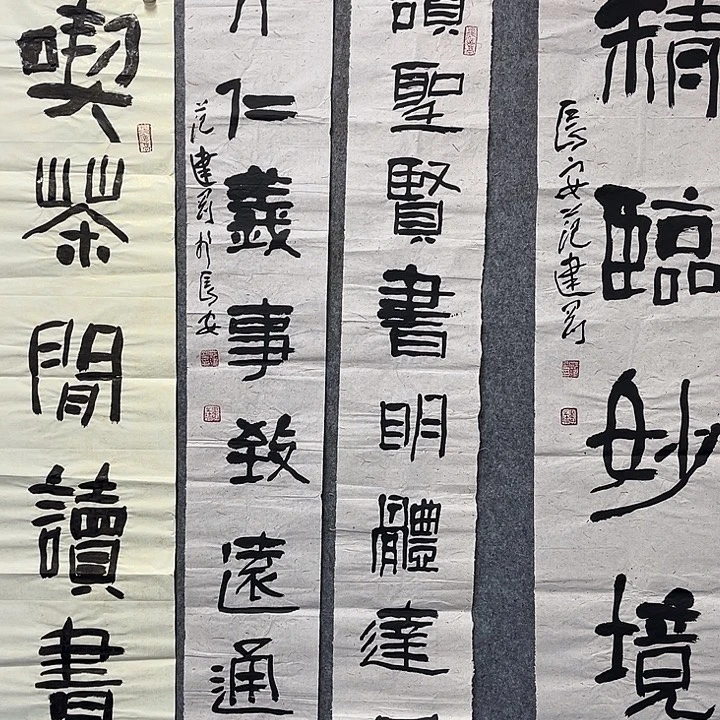 臨妙境
長安范建
讀聖賢書明體達
仁義事致遠通
范建 於長安
喫茶閒讀書